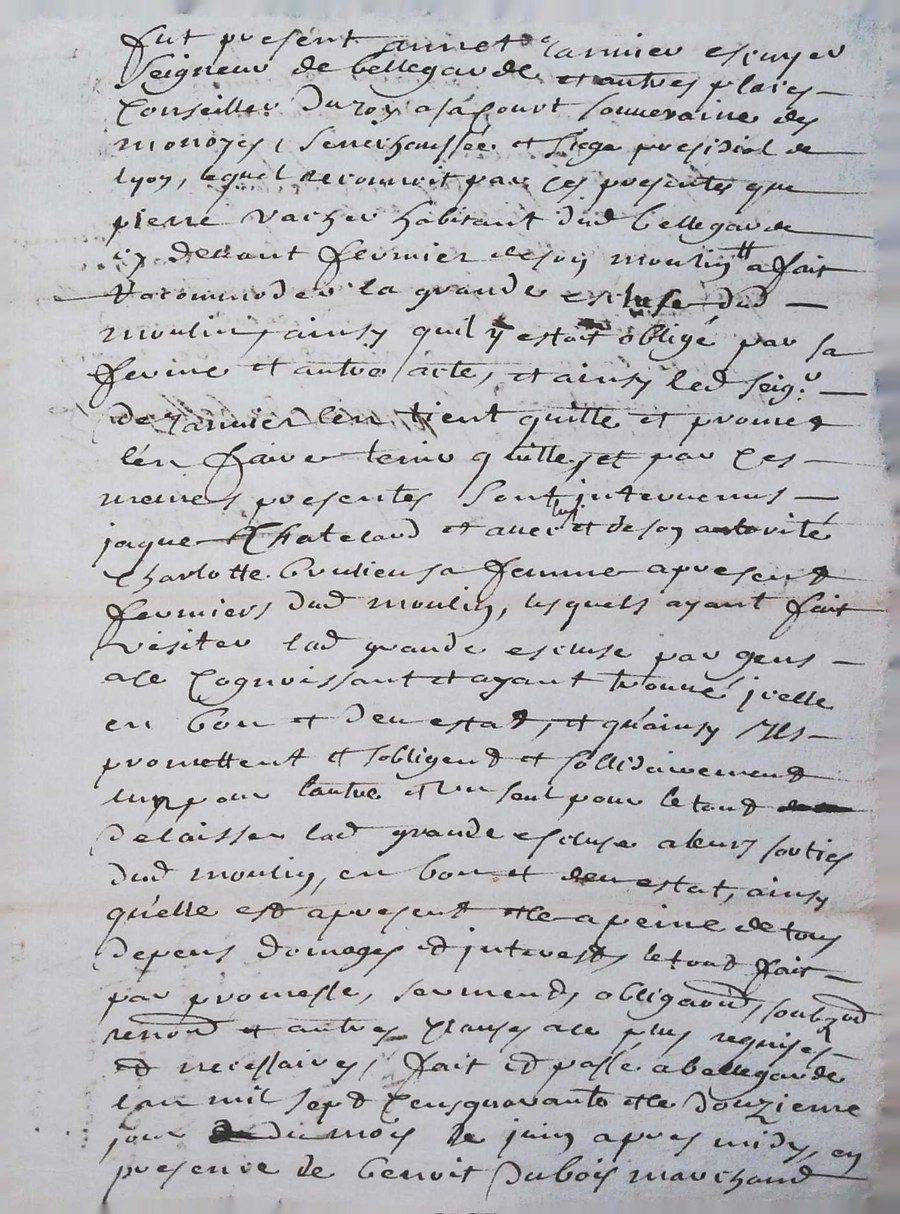 fut present annet ranvier escuyer
Seigneur de bellegarde et autres places
Conseiller du roy a sa Court souveraine des
monoyes, senechaussée et siege presidial de
Lyon, lequel reconnoit par ces presentes que
pierre vacher habitant dud bellegarde
cy devant fermier de son moulin a fait
racommoder la grande escluse dud
moulin, ainsy quil y estoit obligé par sa
ferme et autre acte, et ainsy led seigr
de ranvier len tient quitte et promet
lén faire tenir quitte, et par ces
memes presentes sont intervenus
jaque Chatelard et avec luy et de son autorité
Charlotte brulieu sa femme a present
fermiers dud moulin, lesquels ayant fait
visiter lad grande escluse par gens
a ce Cognoissant et ayant trouvé jcelle
en bon et deu estat, et quainsy Ils
promettent et sobligent et sollidairement
lun pour lautre et un seul pour le tout
delaisser lad grande escluse a leurs sorties
dud moulin, en bon et deu estat, ainsy
quelle est a present et le a peine de tous
depens domages et interests le tout fait
par promesse, serments, obligaons, soubzon
renon et autres Clauses a ce plus requises
et necessaires, fait et passé a bellegarde
lan mil sept Cens quarante et le douzieme
jour du mois de juin apres midy, en
presence de benoit dubois marchand